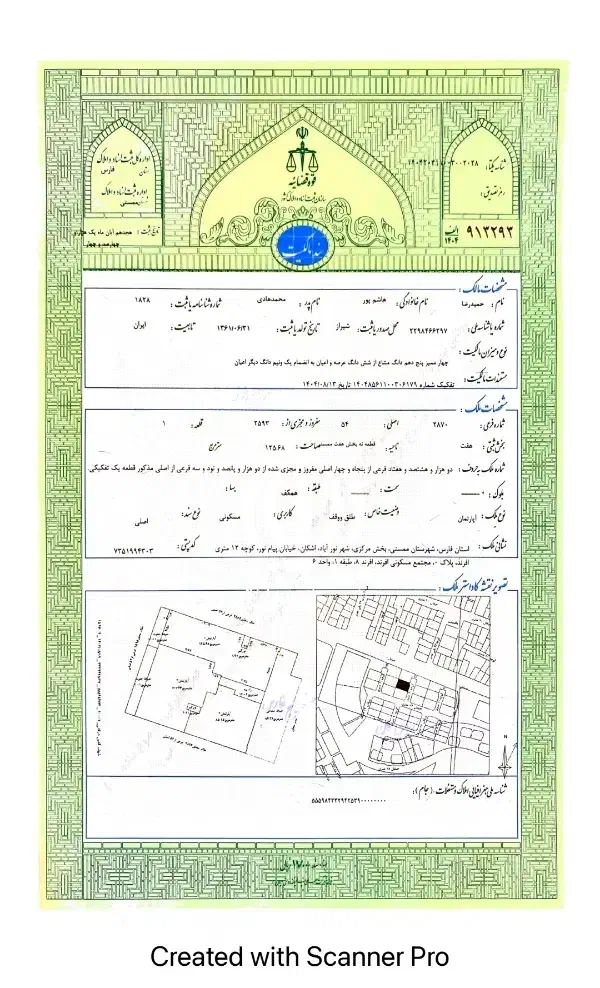 قوه قضائیه
سازمان ثبت اسناد و املاک کشور
سند مالکیت
اداره کل ثبت اسناد و املاک
استان فارس
اداره ثبت اسناد و املاک
شناسه یکتا:
رمز تصدیق:
الف
۱۴۰۴
۹۱۳۲۹۳
تاریخ ثبت: هجدهم آبان ماه یک هزار و
چهارصد و چهار
مشخصات مالک:
نام: حمیدرضا نام خانوادگی: هاشم پور نام پدر: محمدهادی شماره شناسنامه یا ثبت: ۱۸۲۸
شماره یا شناسه ملی: ۲۲۹۸۴۶۶۲۹۷ محل صدور یا ثبت: شیراز تاریخ تولد یا ثبت: ۱۳۶۱/۰۶/۳۱ تابعیت: ایران
نوع و میزان مالکیت:
چهار ممیز پنج دهم دانگ مشاع از شش دانگ عرصه و اعیان به انضمام یک ونیم دانگ دیگر اعیان
مستندات مالکیت: تفکیک شماره ۱۴۰۴۸۵۶۱۱۰۰۳۰۶۱۷۹ تاریخ ۱۴۰۴/۰۸/۱۳
مشخصات ملک:
شماره فرعی: ۲۸۷۰ اصلی: ۵۴ مفروز و مجزی از: ۲۵۹۳ قطعه: ۱
بخش ثبتی: هفت ناحیه: قطعه ته بخش هفت ممسنی مساحت: ۱۲۵.۶۸ مترمربع
شماره ملک به حروف: دو هزار و هشتصد و هفتاد فرعی از پنجاه و چهار اصلی مفروز و مجزی شده از دو هزار و پانصد و نود و سه فرعی از اصلی مذکور قطعه یک تفکیکی.
بلوک: - سمت: طبقه: همکف بنا:
نوع ملک: آپارتمان وضعیت خاص: طلق ووقف کاربری: مسکونی نوع سند: اصلی
نشانی ملک: استان فارس، شهرستان ممسنی، بخش مرکزی، شهر نور آباد، اشکان، خیابان پیام نور، کوچه ۱۲ متری کدپستی: ۷۳۵۱۹۹۴۳۰۳
افرند، پلاک ۰، مجتمع مسکونی افرند، افرند ۸، طبقه ۱، واحد ۶
تصویر نقشه کاداستر ملک:
N
شناسه ملی جغرافیایی املاک و مستغلات (جام):
Created with Scanner Pro